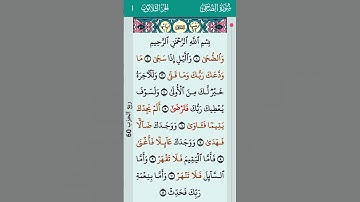 سُورَةُ الضُّحَىٰ
الجزء الثلاثون
١
بِسْمِ ٱللَّهِ ٱلرَّحْمَٰنِ ٱلرَّحِيمِ
وَٱلضُّحَىٰ ۝١ وَٱلَّيْلِ إِذَا سَجَىٰ ۝٢ مَا
وَدَّعَكَ رَبُّكَ وَمَا قَلَىٰ ۝٣ وَلَلْءَاخِرَةُ
خَيْرٌ لَّكَ مِنَ ٱلْأُولَىٰ ۝٤ وَلَسَوْفَ
يُعْطِيكَ رَبُّكَ فَتَرْضَىٰٓ ۝٥ أَلَمْ يَجِدْكَ
يَتِيمًا فَـَٔاوَىٰ ۝٦ وَوَجَدَكَ ضَآلًّا
فَهَدَىٰ ۝٧ وَوَجَدَكَ عَآئِلًا فَأَغْنَىٰ
۝٨ فَأَمَّا ٱلْيَتِيمَ فَلَا تَقْهَرْ ۝٩ وَأَمَّا
ٱلسَّآئِلَ فَلَا تَنْهَرْ ۝١٠ وَأَمَّا بِنِعْمَةِ
رَبِّكَ فَحَدِّثْ ۝١١
ربع الحزب 60